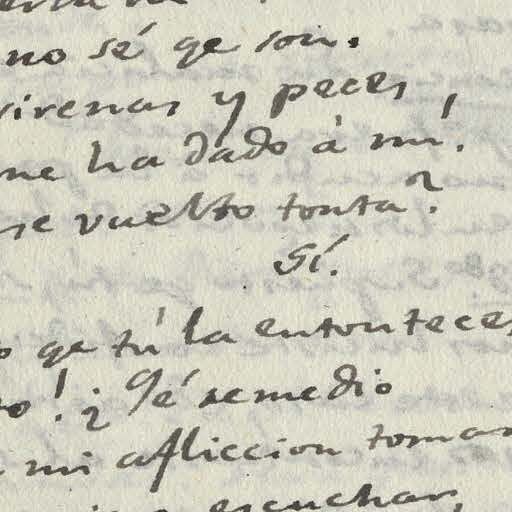 no sé qe son.
sirenas y peces
me ha dado à mí!
se vuelto tonta?
Sí.
qe tú la entonteces
! ¿Qé remedio
mi afliccion tomar
escuchar,